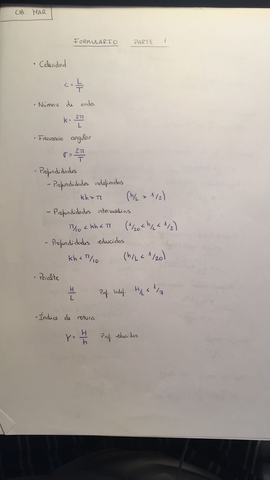 OB MAR
FORMULARIO PARTE 1
· Celeridad
c = L/T
· Número de onda
k = 2π/L
· Frecuencia angular
σ = 2π/T
· Profundidades
- Profundidades indefinidas
kh > π (h/L > 1/2)
- Profundidades intermedias
π/10 < kh < π (1/20 < h/L < 1/2)
- Profundidades reducidas
kh < π/10 (h/L < 1/20)
· Peralte
H/L Prof. Indef. H/L < 1/7
· Índice de rotura
γ = H/h Prof reducidas